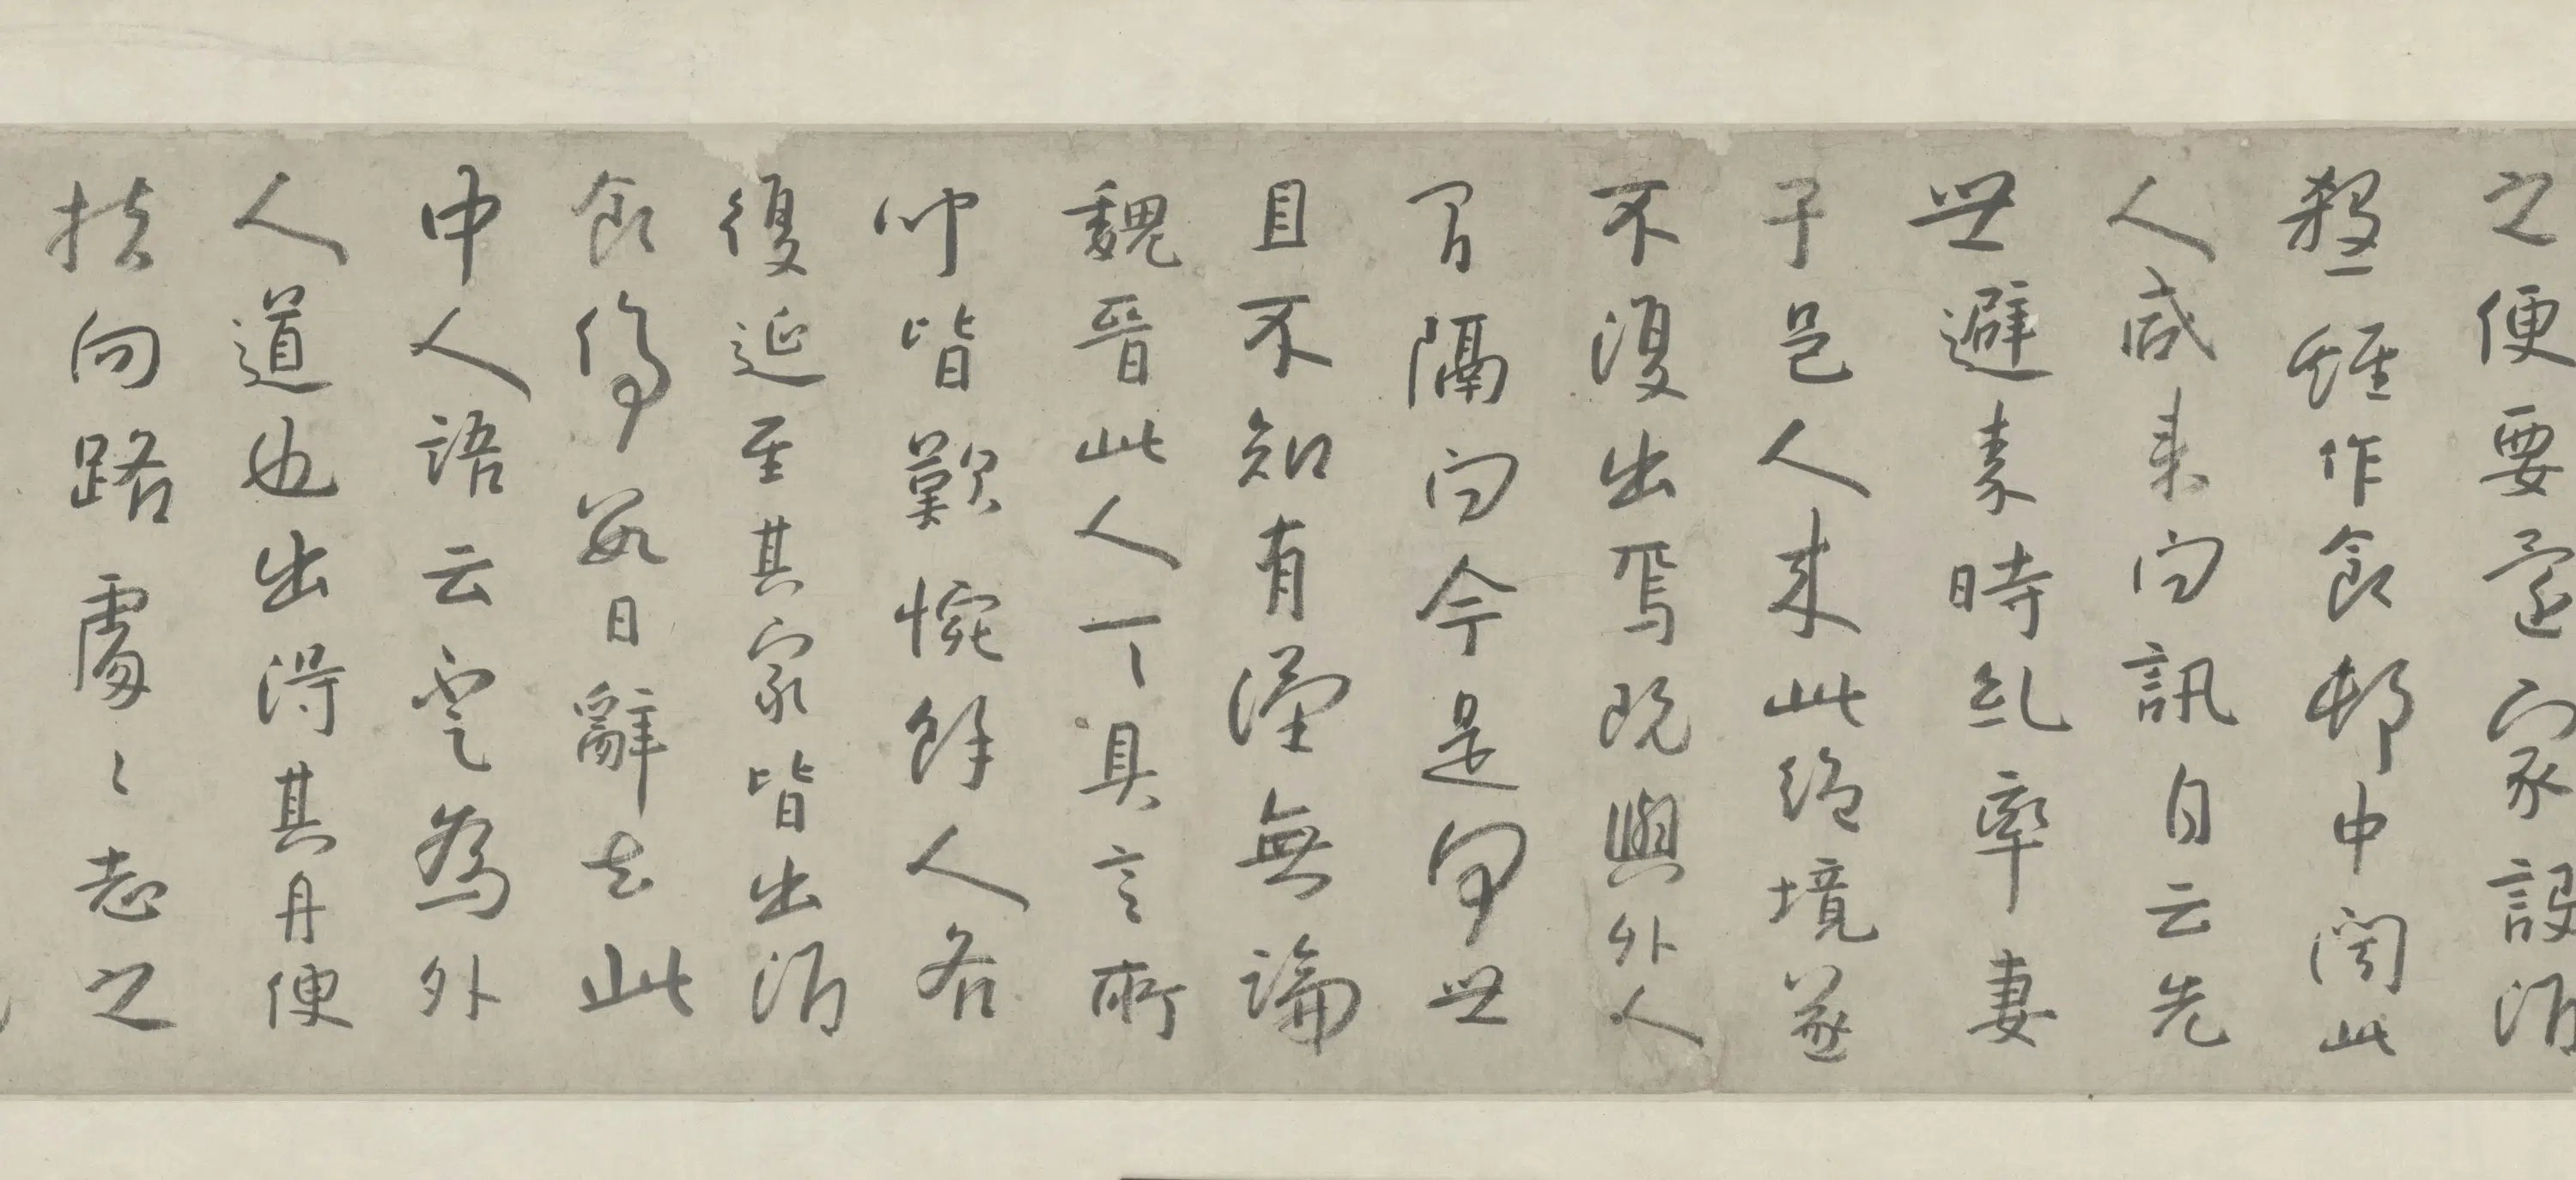 之便要還家設酒
殺雞作食邨中聞此
人咸来问訊自云先
世避秦時乱率妻
子邑人来此絕境遂
不復出焉既與外人
間隔问今是何世
且不知有漢無論
魏晉此人一一具言所
聞皆歎惋餘人各
復延至其家皆出酒
食停數日辭去此
中人語云不足為外
人道也出得其舟便
扶向路處〻志之